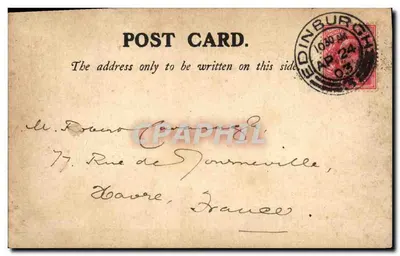 POST CARD.
The address only to be written on this side
EDINBURGH
AP 24
03
CPAPHIL
77 Rue de Tourneville,
Havre, France